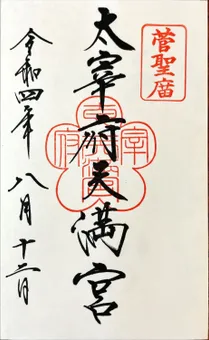 菅聖庿
太宰府天満宮
令和四年
八月十二日